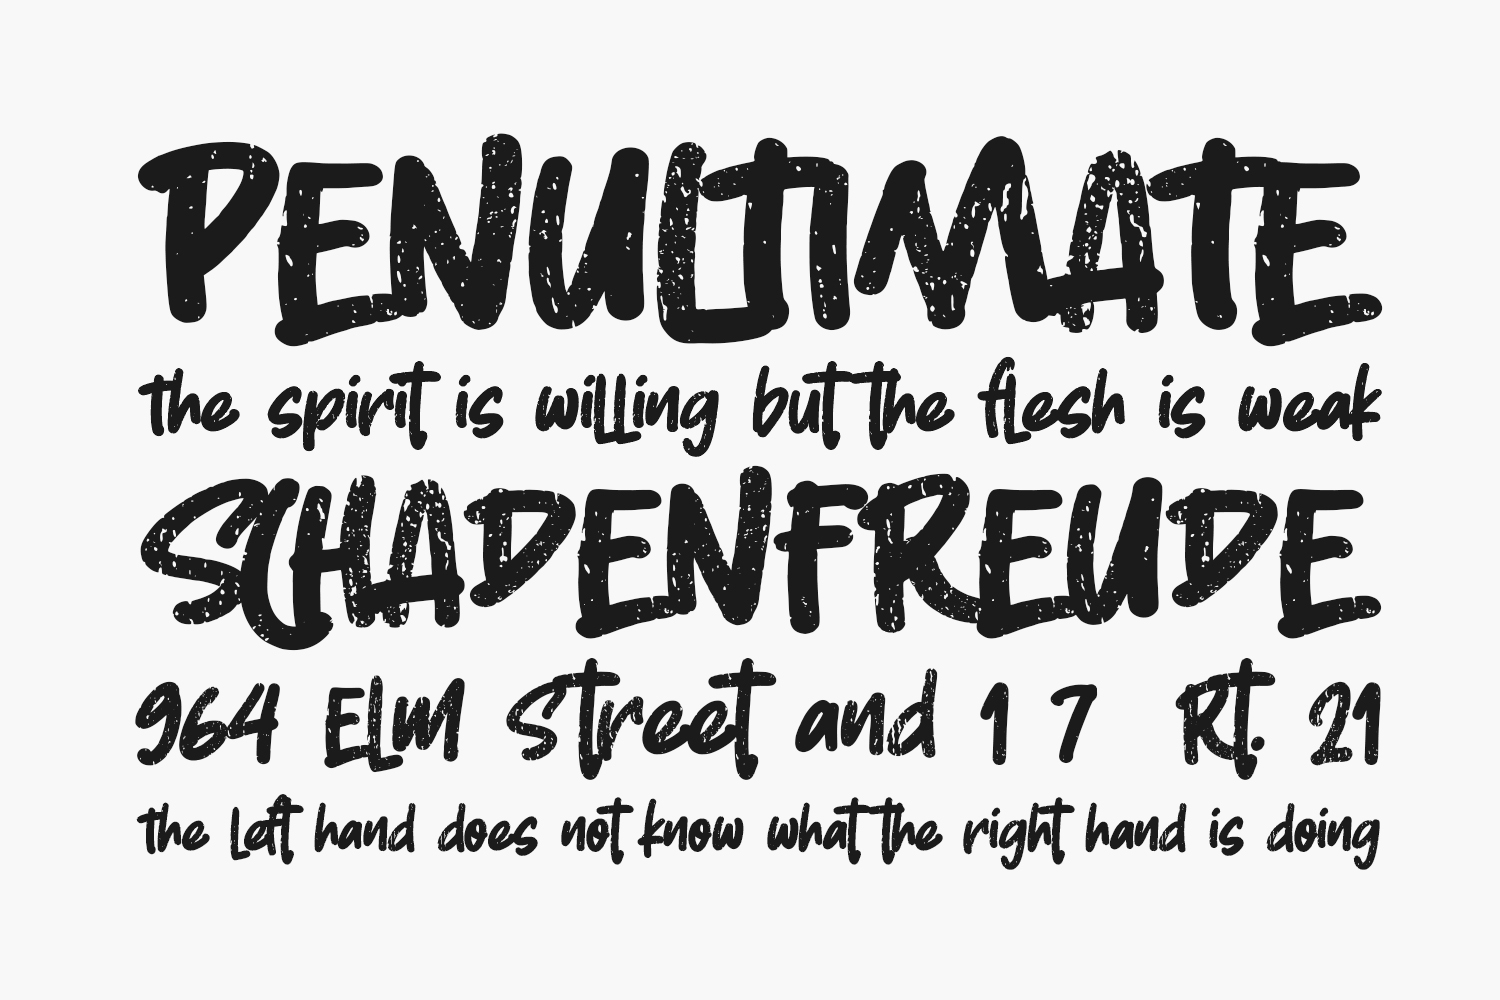 PENULTIMATE
the spirit is willing but the flesh is weak
SCHADENFREUDE
964 Elm Street and 1 7 Rt. 21
the left hand does not know what the right hand is doing